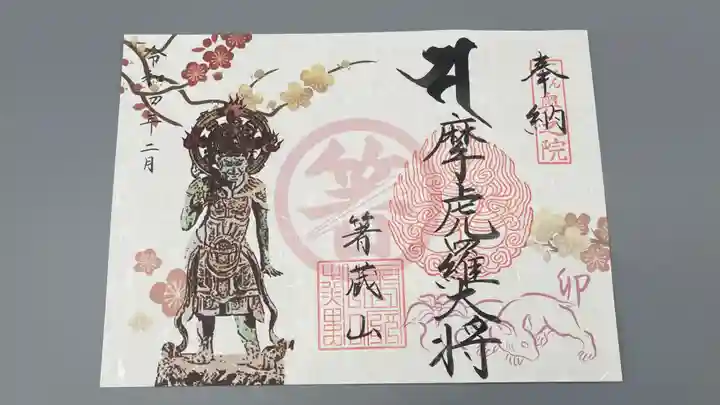 奉納
摩虎羅大将
卯
箸
箸蔵山
令和四年二月